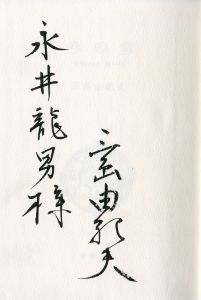 永井龍男様
三島由紀夫